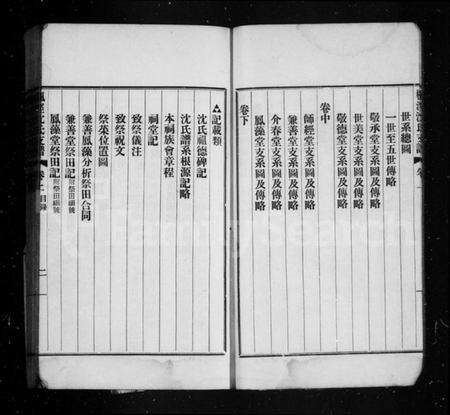 世系總圖
一世至五世傳略
敬承堂支系圖及傳略
世美堂支系圖及傳略
敬德堂支系圖及傳略
卷中
師經堂支系圖及傳略
兼善堂支系圖及傳略
介春堂支系圖及傳略
鳳藻堂支系圖及傳略
卷下
記載類
沈氏祖德碑記
沈氏譜系根源記略
本祠族會章程
祠堂記
致祭儀注
致祭祝文
祭菜位置圖
兼善鳳藻分析祭田合同
兼善堂祭田記 附祭田細號
鳳藻堂祭田記 附祭田細號